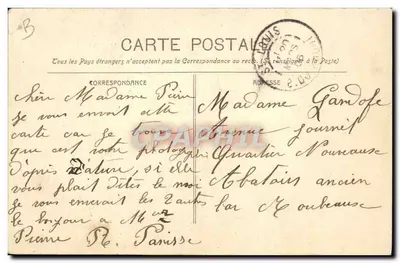 B
CARTE POSTALE
Tous les Pays étrangers n'acceptent pas la Correspondance au recto
à la Poste)
CORRESPONDANCE
ADRESSE
chère Madame Pierre
je vous envoit cette
carte car je trouve
que est votre photographie
d'après nature, si elle
vous plait dites le moi
je vous enverait les 2 autres
le bonjour a Mr
Pierre R. Parisse
Madame
Avenue Journet
Quartier
Abatoirs ancien
bar
Cparama